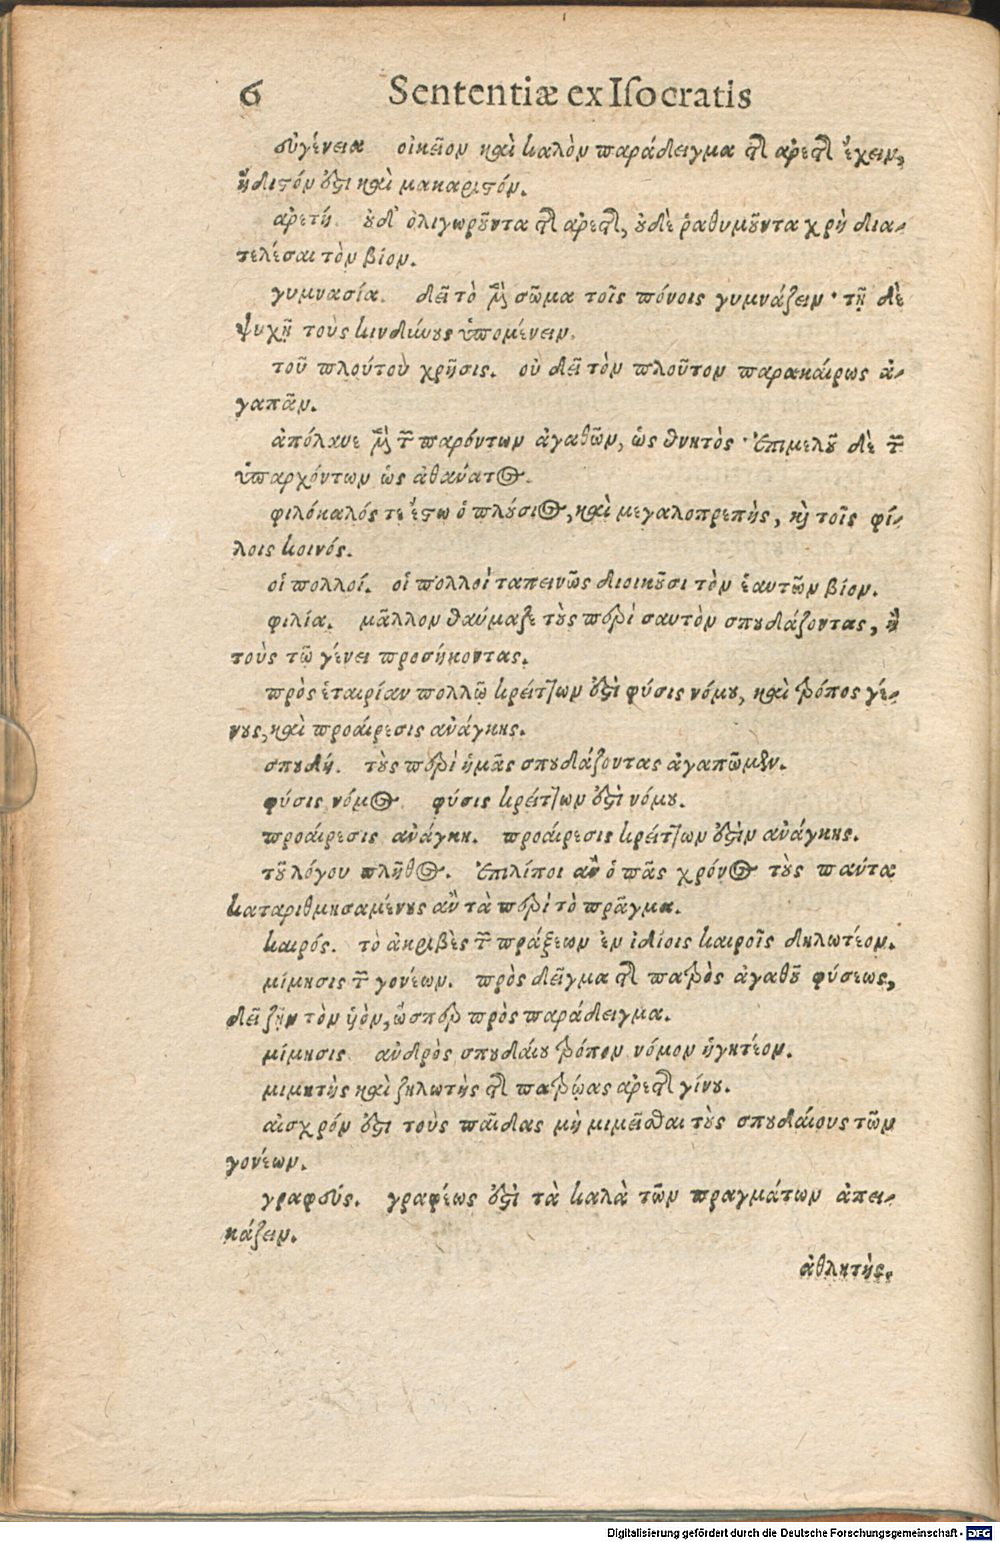 6 Sententiæ ex Isocratis
συγγένεια οἰκεῖον καὶ καλὸν παράδειγμα τῆς ἀρετῆς ἔχειν,
ἥδιστόν ὅτι καὶ μακαριστόν.
ἀρετή. οὐδ' ὀλιγωροῦντα τῆς ἀρετῆς, οὐδὲ ῥαθυμοῦντα χρὴ δια-
τελέσαι τὸν βίον.
γυμνασία. δεῖ τὸ μὲν σῶμα τοῖς πόνοις γυμνάζειν· τῇ δὲ
ψυχῇ τοὺς κινδύνους ὑπομένειν.
τοῦ πλούτου χρῆσις. οὐ δεῖ τὸν πλοῦτον παρακαίρως ἀ-
γαπᾶν.
ἀπόλαυε μὲν τῶν παρόντων ἀγαθῶν, ὡς θνητὸς· ἐπιμελοῦ δὲ τῶν
ὑπαρχόντων ὡς ἀθανάτος.
φιλόκαλός τε ἔστω ὁ πλούσιος, καὶ μεγαλοπρεπής, καὶ τοῖς φί-
λοις κοινός.
οἱ πολλοί. οἱ πολλοὶ ταπεινῶς διοικοῦσι τὸν ἑαυτῶν βίον.
φιλία. μᾶλλον θαύμαζε τοὺς περὶ σαυτὸν σπουδάζοντας, ἢ
τοὺς τῷ γένει προσήκοντας.
πρὸς ἑταιρίαν πολλῷ κρείττων ἐστὶ φύσις νόμου, καὶ τρόπος γέ-
νους, καὶ προαίρεσις ἀνάγκης.
σπουδή. τοὺς περὶ ἡμᾶς σπουδάζοντας ἀγαπῶμεν.
φύσις νόμος φύσις κρείττων ἐστὶ νόμου.
προαίρεσις ἀνάγκη. προαίρεσις κρείττων ἐστὶν ἀνάγκης.
τοῦ λόγου πλῆθος. ἐπιλίποι ἂν ὁ πᾶς χρόνος τοὺς πάντα
καταριθμησαμένους ἂν τὰ περὶ τὸ πρᾶγμα.
καιρός. τὸ ἀκριβὲς τῶν πράξεων ἐν ἰδίοις καιροῖς δηλωτέον.
μίμησις τῶν γονέων. πρὸς δεῖγμα τῆς πατρὸς ἀγαθοῦ φύσεως,
δεῖ ζῆν τὸν υἱὸν, ὥσπερ πρὸς παράδειγμα.
μίμησις ἀνδρὸς σπουδαίου τρόπον νόμον ἡγητέον.
μιμητὴς καὶ ζηλωτὴς τῆς πατρῴας ἀρετῆς γίνου.
αἰσχρόν ἐστι τοὺς παῖδας μὴ μιμεῖσθαι τοὺς σπουδαίους τῶν
γονέων.
γραφεύς. γραφέως ἐστὶ τὰ καλὰ τῶν πραγμάτων ἀπει-
κάζειν.
ἀθλητής.
Digitalisierung gefördert durch die Deutsche Forschungsgemeinschaft - DFG